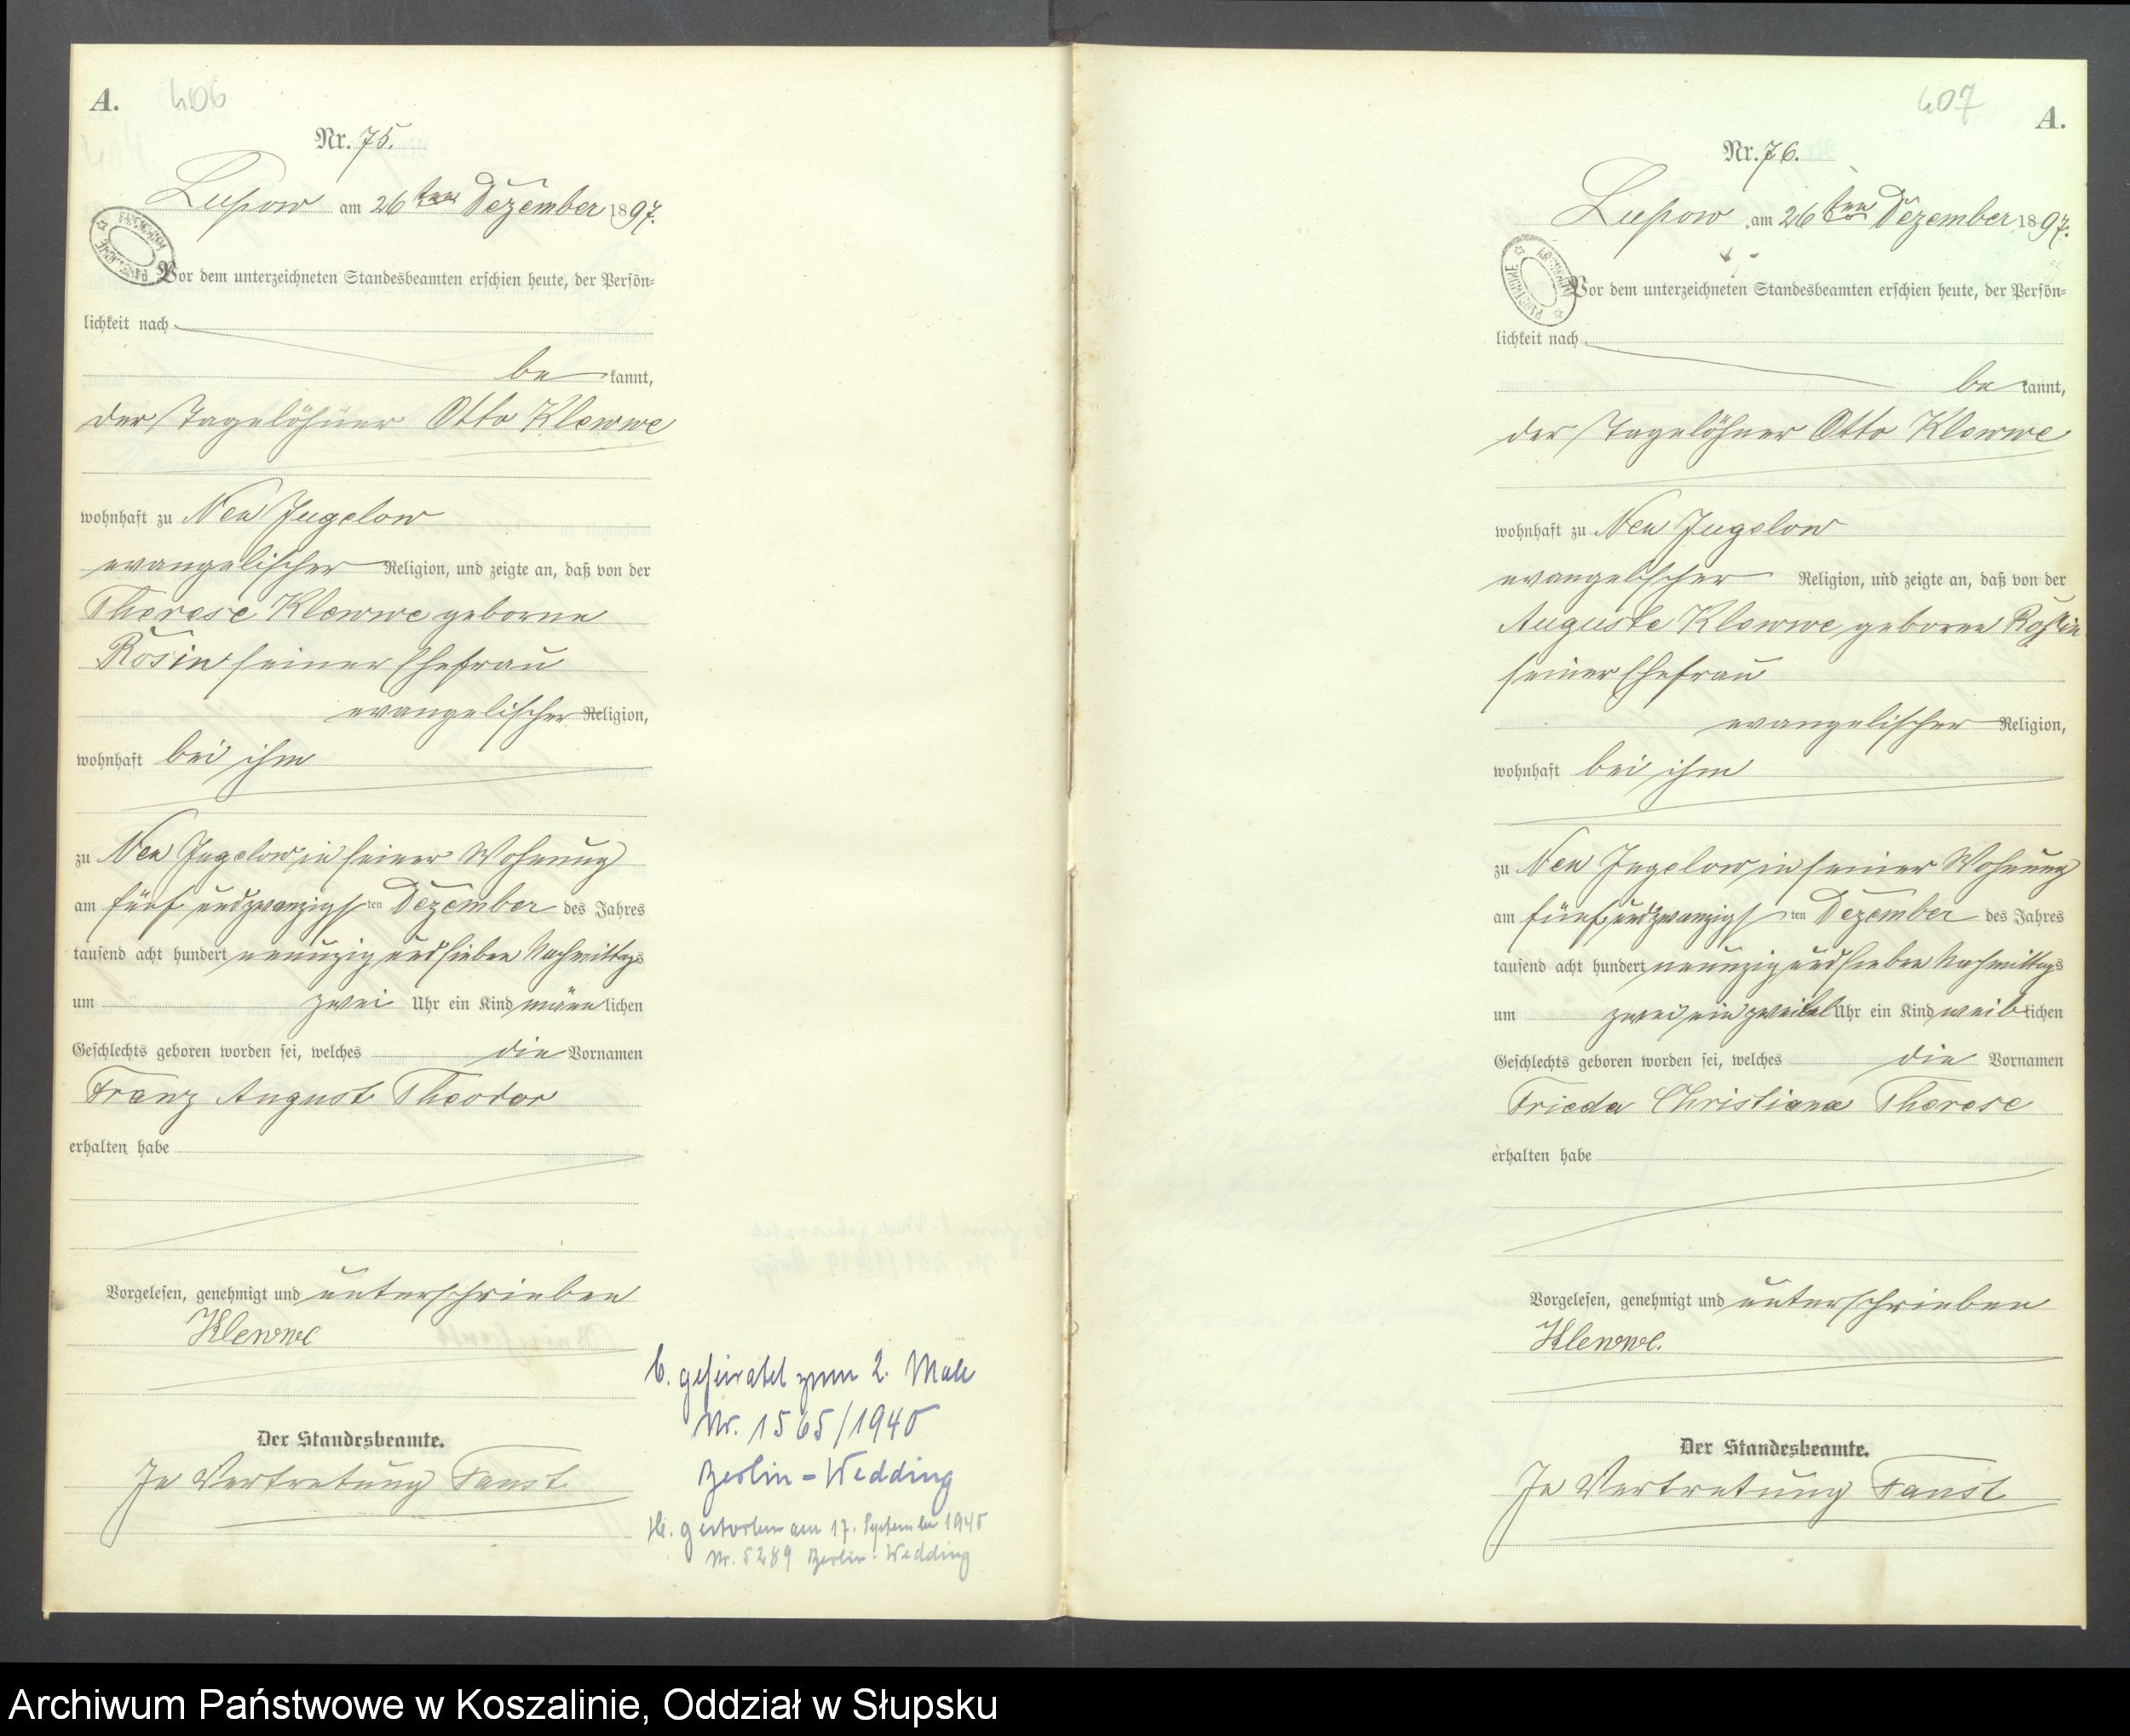 A. 406
Nr. 75.
Lupow am 26ten Dezember 1897.
Vor dem unterzeichneten Standesbeamten erschien heute, der Persön-
lichkeit nach
be kannt,
der Tagelöhner Otto Klewwe
wohnhaft zu Neu Jugelow
evangelischer Religion, und zeigte an, daß von der
Therese Klewwe geborne
Rosin seiner Ehefrau
evangelischer Religion,
wohnhaft bei ihm
zu Neu Jugelow in seiner Wohnung
am fünf und zwanzigsten Dezember des Jahres
tausend acht hundert neunzig und sieben Nachmittags
um zwei Uhr ein Kind männlichen
Geschlechts geboren worden sei, welches die Vornamen
Franz August Theodor
erhalten habe
Vorgelesen, genehmigt und unterschrieben
Klewwe
Der Standesbeamte.
In Vertretung Faust
b. geheiratet zum 2. Male
Nr. 1565/1940
Berlin-Wedding
gestorben am 17. September 1945
Nr. 5289 Berlin-Wedding
407 A.
Nr. 76.
Lupow am 26ten Dezember 1897.
Vor dem unterzeichneten Standesbeamten erschien heute, der Persön-
lichkeit nach
be kannt,
der Tagelöhner Otto Klewwe
wohnhaft zu Neu Jugelow
evangelischer Religion, und zeigte an, daß von der
Auguste Klewwe geborne Rosin
seiner Ehefrau
evangelischer Religion,
wohnhaft bei ihm
zu Neu Jugelow in seiner Wohnung
am fünf und zwanzigsten Dezember des Jahres
tausend acht hundert neunzig und sieben Nachmittags
um zwei ein zweitel Uhr ein Kind weiblichen
Geschlechts geboren worden sei, welches die Vornamen
Frieda Christiane Therese
erhalten habe
Vorgelesen, genehmigt und unterschrieben
Klewwe.
Der Standesbeamte.
In Vertretung Faust
Archiwum Państwowe w Koszalinie, Oddział w Słupsku